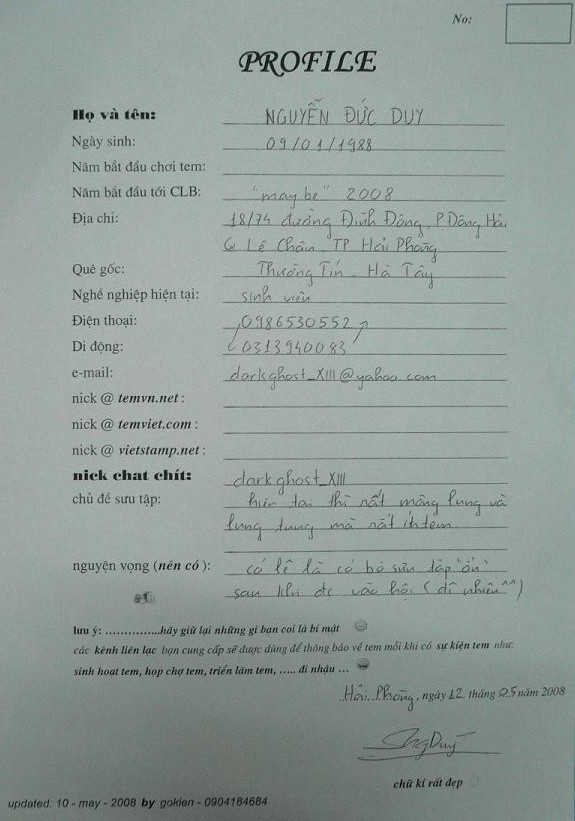 No:
PROFILE
Họ và tên: NGUYỄN ĐỨC DUY
Ngày sinh: 09/01/1988
Năm bắt đầu chơi tem:
Năm bắt đầu tới CLB: "maybe" 2008
Địa chỉ: 18/74 đường Đình Đông, P Đông Hải
Q Lê Chân TP Hải Phòng
Quê gốc: Thường Tín - Hà Tây
Nghề nghiệp hiện tại: sinh viên
Điện thoại: 0986530552
Di động: 0313940083
e-mail: darkghost_XIII@yahoo.com
nick @ temvn.net :
nick @ temviet.com :
nick @ vietstamp.net :
nick chat chít: darkghost_XIII
chủ đề sưu tập: hiện tại thì rất mông lung và
lung tung mà rất ít tem
nguyện vọng (nên có): có lẽ là có bộ sưu tập "ổn"
sau khi đc vào hội (dĩ nhiên ^^)
lưu ý: ..............hãy giữ lại những gì bạn coi là bí mật
các kênh liên lạc bạn cung cấp sẽ được dùng để thông báo về tem mỗi khi có sự kiện tem như:
sinh hoạt tem, họp chợ tem, triển lãm tem, ..... đi nhậu ...
Hải Phòng, ngày 12 tháng 05 năm 2008
Duy
chữ kí rất đẹp
updated: 10 - may - 2008 by gokien - 0904184684